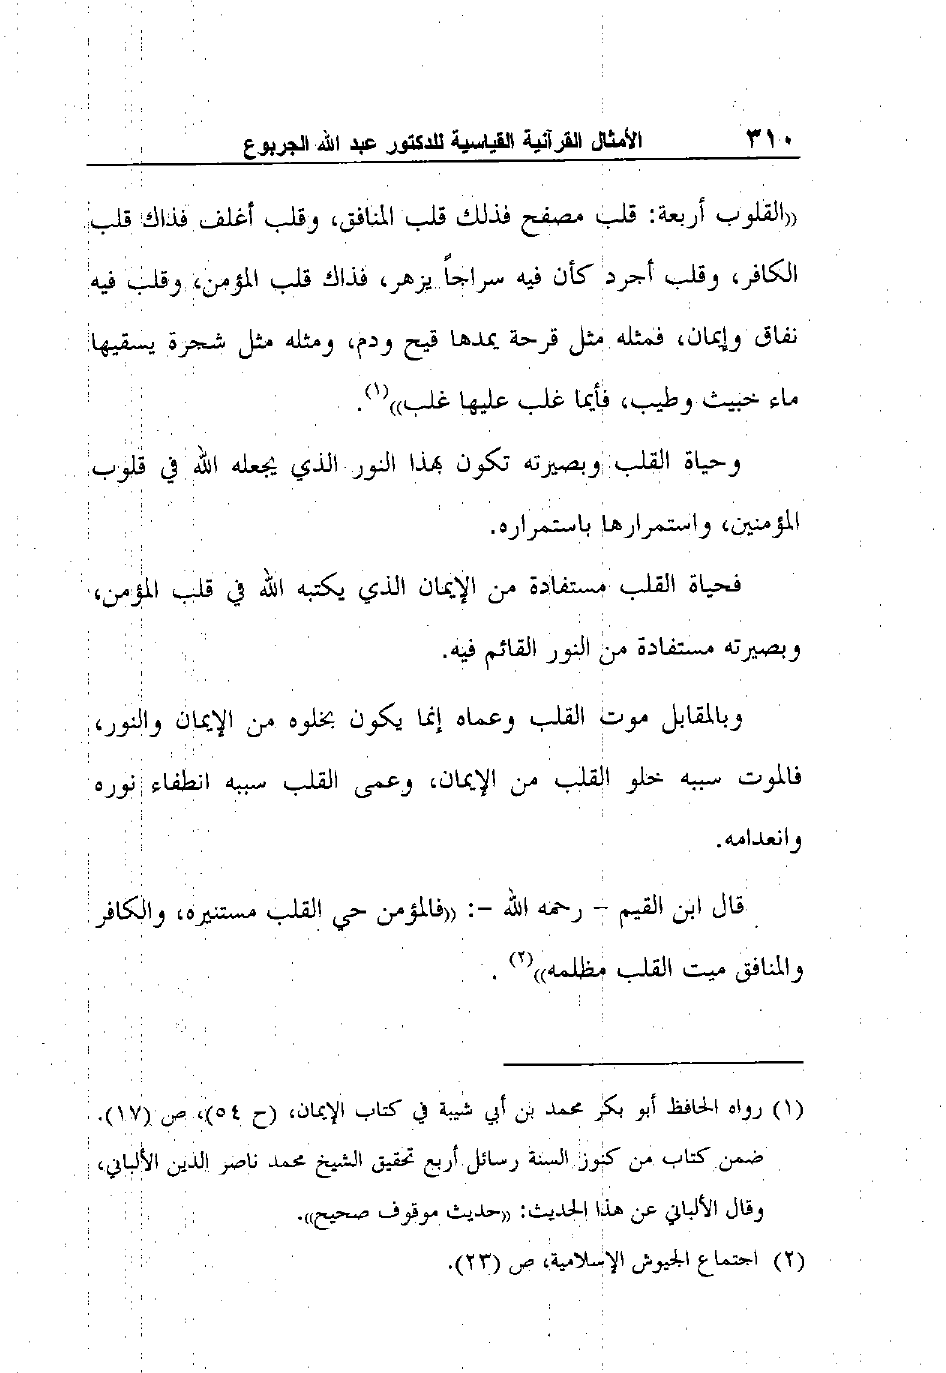 ٣١٠ الأمثال القرآنية القياسية للدكتور عبد الله الجربوع
((القلوب أربعة: قلب مصفح فذلك قلب المنافق، وقلب أغلف فذاك قلب
الكافر، وقلب أجرد كأن فيه سراجاً يزهر، فذاك قلب المؤمن، وقلب فيه
نفاق وإيمان، فمثله مثل قرحة يمدها قيح ودم، ومثله مثل شجرة يسقيها
ماء خبيث وطيب، فأيما غلب عليها غلب))(١).
وحياة القلب وبصيرته تكون بهذا النور الذي يجعله الله في قلوب
المؤمنين، واستمرارها باستمراره.
فحياة القلب مستفادة من الإيمان الذي يكتبه الله في قلب المؤمن،
وبصيرته مستفادة من النور القائم فيه.
وبالمقابل موت القلب وعماه إنما يكون بخلوه من الإيمان والنور،
فالموت سببه خلو القلب من الإيمان، وعمى القلب سببه انطفاء نوره
وانعدامه.
قال ابن القيم – رحمه الله –: ((فالمؤمن حي القلب مستنيره، والكافر
والمنافق ميت القلب مظلمه))(٢) .
(١) رواه الحافظ أبو بكر محمد بن أبي شيبة في كتاب الإيمان، (ح ٥٤)، ص (١٧).
ضمن كتاب من كنوز السنة رسائل أربع تحقيق الشيخ محمد ناصر الدين الألباني،
وقال الألباني عن هذا الحديث: ((حديث موقوف صحيح)).
(٢) اجتماع الجيوش الإسلامية، ص (٢٣).